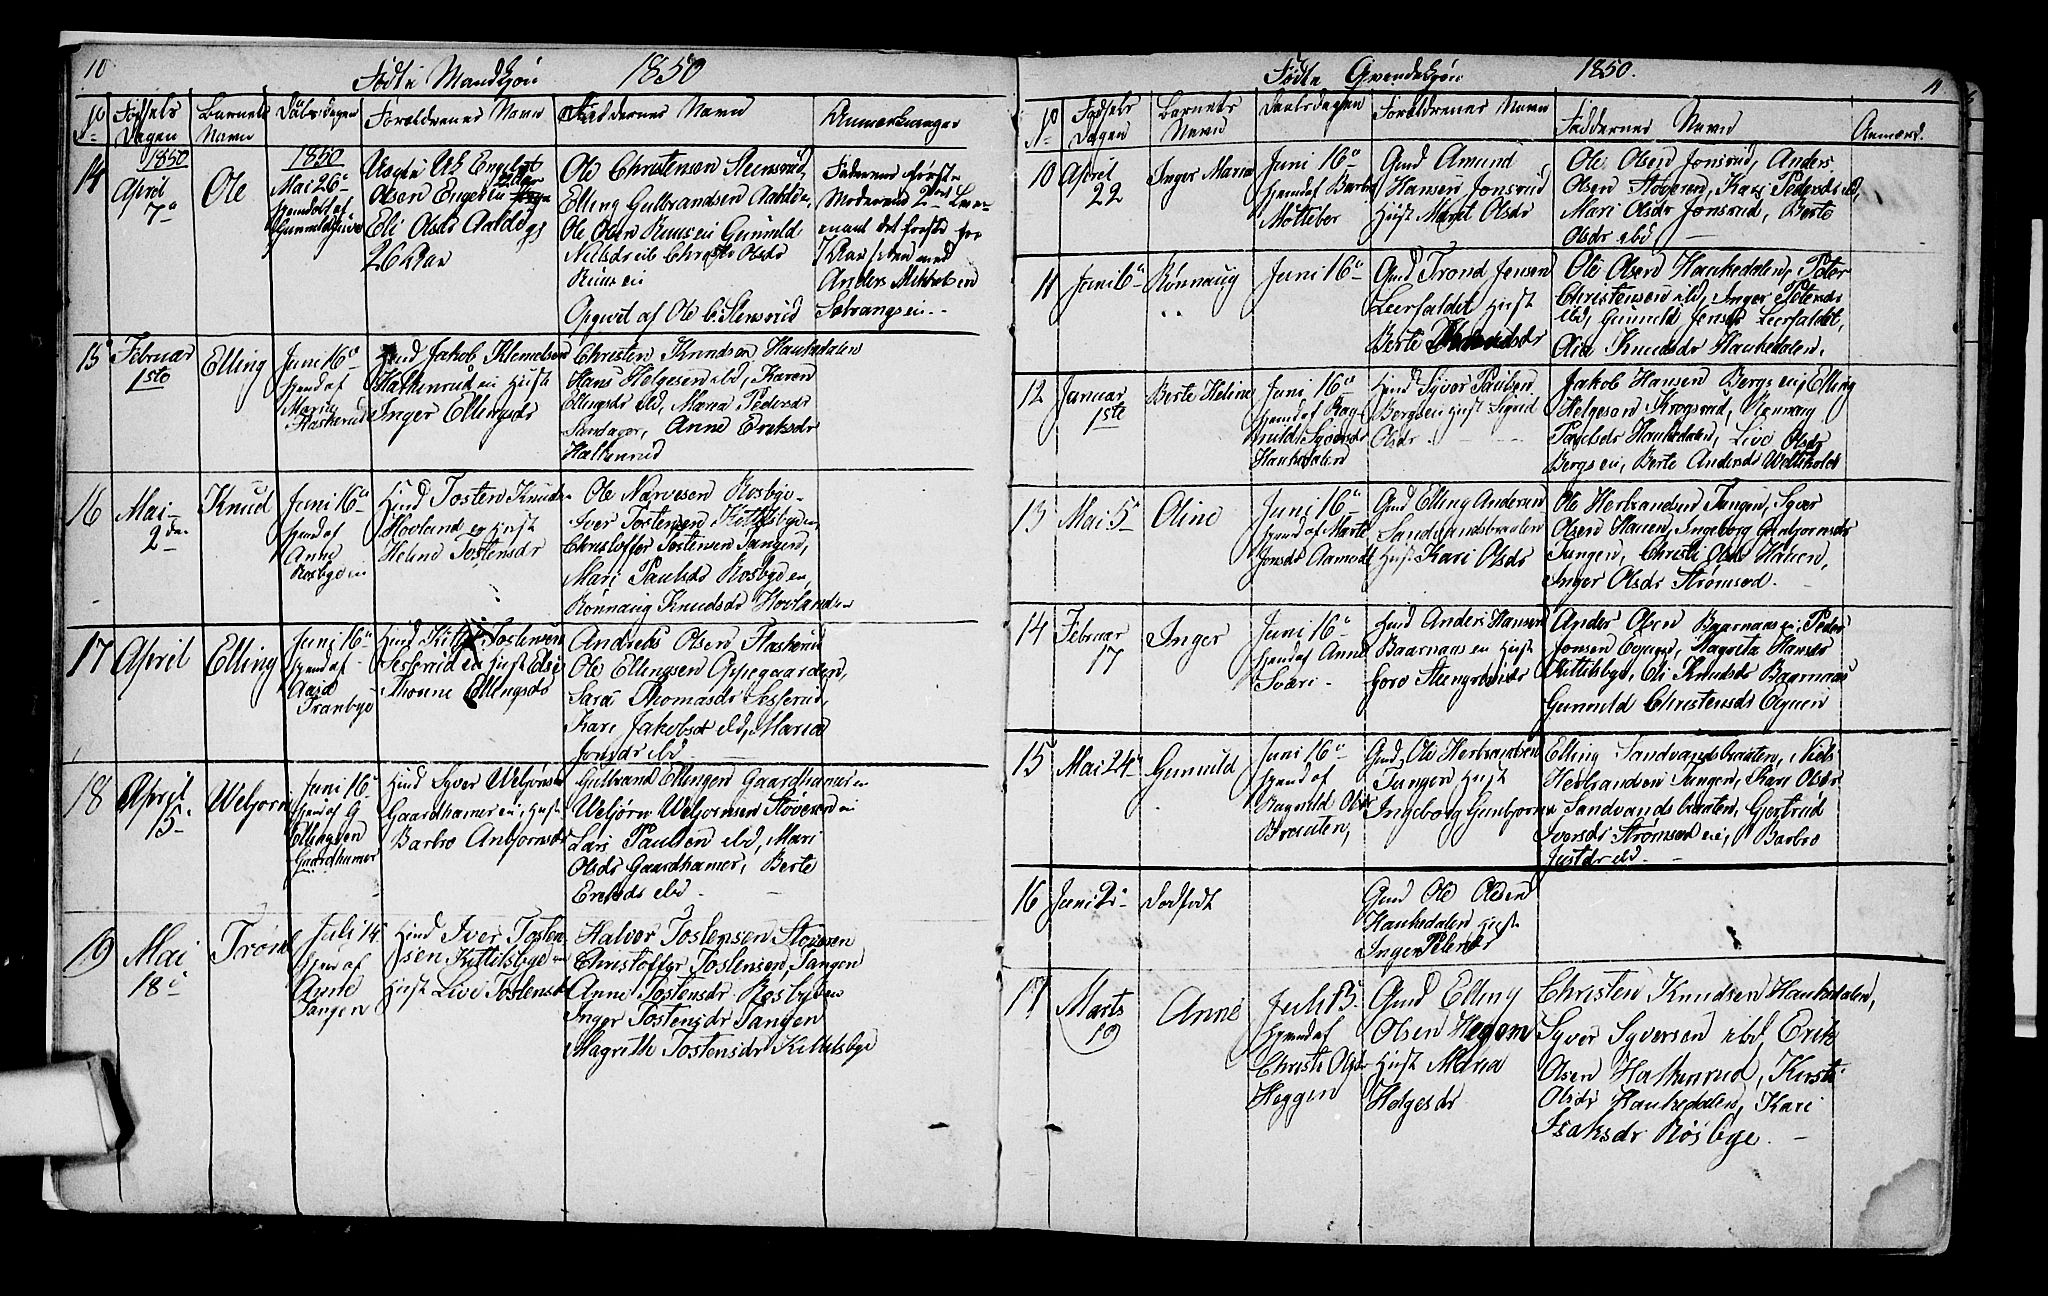 10
Fødte Mandkjøn 1850
No
Fødsels
Dagen
Barnets
Navn
Daabsdagen
Forældrenes Navn
Faddernes Navn
Anmerkninger
14
1850
April
7de
Ole
1850
Mai 26de
hjemdøbt af
Uægte Uk Engebret
Olsen
Eli Olsdr
26 Aar
Ole Christensen Stensrud,
Elling Gulbrandsen
Ole Olsen Ruusei Gunuld
Nilsdr ib Christi Olsdr
Ruus ei
Opgivet af Ole C. Stensrud
Faderens første
Moderens 2det Leier-
maal det første for
7 Aar siden med
Anders Mikkelsen
15
Februar
1ste
Elling
Juni 16de
hjemd af
Marie
Flaskerud
Huusmd Jakob Klemetsen
Halkenrud ei Hust
Inger Ellingsdr
Christen Knudsen Haukedalen
Hans Helgesen ibd, Karen
Ellingsdr ibd, Maria Pedersdr
Sandager, Anne Eriksdr
Halkenrud
16
Mai
2den
Knud
Juni 16de
hjemd af
Anne
Rosbye ei
Husd Tosten Knuds-
Hovland ei Hust
Helene Tostensdr
Ole Narvesen Rosbye-
Iver Tostensen Kittilsbye ei,
Christoffer Tostensen Tangen,
Mari Paulsdr Rosbye ei,
Rønnaug Knudsdr Hovland ei
17
April
Elling
Juni 16de
hjemd af
Aase
Tranbye
Husd Kittil Tostensen
Sisserud ei Hust Else
Thonne Ellingsdr
Andreas Olsen Flaskerud
Ole Ellingsen Oppegaarden,
Sara Thomasdr Sisserud,
Kari Jakobsdr ibd, Maria
Jonsdr ibd
18
April
15de
Webjørn
Juni 16de
hjemd af G
Ellingsen
Gaardhamer
Husd Syver Webjørnsen
Gaardhamer ei, Hust
Barbro Anbjørnsdr
Gulbrand Ellingsen Gaardhamer ei
Webjørn Webjørnsen Støveren ei
Lars Paulsen ibd, Mari
Olsdr Gaardhamer, Berte
Eriksdr ibd
19
Mai
18de
Trond
Juli 14de
hjemd af
Anne
Tangen
Husd Iver Tosten-
sen Kittilsbye ei
Hust Live Tostensdr
Halvor Tostensen Støveren
Christoffer Tostensen Tangen
Anne Tostensdr Rosbye ei
Inger Tostensdr Tangen
Magrith Tostensdr Kittilsbye
11
Fødte Qvindekjøn 1850.
No
Fødsels
Dagen
Barnets
Navn
Daabsdagen
Forældrenes Navn
Faddernes Navn
Anmærk.
10
April
22
Inger Maria
Juni 16de
hjemd af Barbro
Møllebøe
Gmd Amund
Hansen Jonsrud
Hust Maret Olsdr
Ole Olsen Jonsrud, Anders
Olsen Støveren, Kari Pedersdr ibd,
Mari Olsdr Jonsrud, Berte
Olsdr ibd
11
Juni 6de
Rønnaug
Juni 16de
Gmd Trond Jensen
Leerfaldet Hust
Berte
Ole Olsen Haukedalen, Peter
Christensen ibd, Inger Petersdr
ibd, Gunuld Jensdr Leerfaldet,
Olia Knudsdr Haukedalen.
12
Januar
1ste
Berte Helene
Juni 16de
hjemd af Rag-
nuld Syversdr
Haukedalen
Husd Syver Paulsen
Bergs ei Hust Sigrid
Olsdr
Jakob Hansen Bergs ei, Elling
Helgesen Krogsrud, Rønnaug
Paulsdr Haukedalen, Live Olsdr
Bergs ei, Berte Andersdr
13
Mai 5te
Oline
Juni 16de
hjemd af Marte
Jonsdr Aamodt
Gmd Elling Andersen
Sandvandsbraaten
Hust Kari Olsdr
Ole Herbrandsen Tangen, Syver
Olsen Hauen, Ingeborg Gunbjørnsdr
Tangen, Christi Olsdr Hauen,
Inger Olsdr Strømsød.
14
Februar
17
Inger
Juni 16de
hjemd af Anne
Sværi
Husd Anders Hansen
Baarnaas ei Hust
Goro Steengrimsdr
Ander Olsen Baarnaas ei, Peder
Jonsen Egness, Magreta Hansdr
Kittilsbye, Eli Knudsdr Baarnaas
Gunuld Christensdr
15
Mai 24de
Gunuld
Juni 16de
hjemd af
Ragnuld Olsdr
Braaten,
Gmd, Ole Herbrandsen
Tangen Hust
Ingeborg Gunbjørnsdr
Elling Sandvandsbraaten, Niels
Herbrandsen Tangen, Kari Olsdr
Sandvandsbraaten, Gjertrud
Iversdr Strømsød ei, Barbro
Justdr ibd
16
Juni 2de
Dødfødt
Gmd Ole Olsen
Haukedalen Hust
Inger Petersdr
17
Marts
19
Anne
Juli 15
hjemd af
Christi Olsdr
Heggen
Gmd Elling
Olsen Heggen
Hust Maria
Helgesdr
Christen Knudsen Haukedalen,
Syver Syversen ibd, Erik
Olsen Halkenrud, Kirsti
Olsdr Haukedalen, Kari
Isaksdr Rosbye.